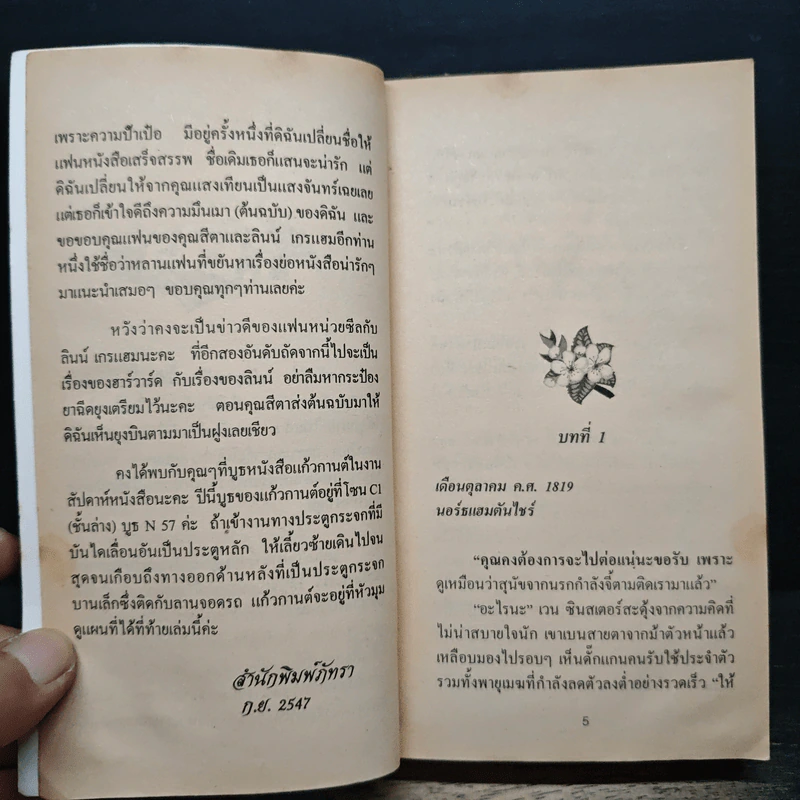 เพราะความป้ำเป๋อ มีอยู่ครั้งหนึ่งที่ดิฉันเปลี่ยนชื่อให้
แฟนหนังสือเสร็จสรรพ ชื่อเดิมเธอก็แสนจะน่ารัก แต่
ดิฉันเปลี่ยนให้จากคุณแสงเทียนเป็นแสงจันทร์เฉยเลย
แต่เธอก็เข้าใจดีถึงความมึนเมา (ต้นฉบับ) ของดิฉัน และ
ขอขอบคุณแฟนของคุณสีตาและลินน์ เกรแฮมอีกท่าน
หนึ่งใช้ชื่อว่าหลานแฟนที่ขยันหาเรื่องย่อหนังสือน่ารักๆ
มาแนะนำเสมอๆ ขอบคุณทุกๆท่านเลยค่ะ
หวังว่าคงจะเป็นข่าวดีของแฟนหน่วยซีลกับ
ลินน์ เกรแฮมนะคะ ที่อีกสองอันดับถัดจากนี้ไปจะเป็น
เรื่องของฮาร์วาร์ด กับเรื่องของลินน์ อย่าลืมหากระป๋อง
ยาฉีดยุงเตรียมไว้นะคะ ตอนคุณสีตาส่งต้นฉบับมาให้
ดิฉันเห็นยุงบินตามมาเป็นฝูงเลยเชียว
คงได้พบกับคุณๆที่บูธหนังสือแก้วกานต์ในงาน
สัปดาห์หนังสือนะคะ ปีนี้บูธของแก้วกานต์อยู่ที่โซน C1
(ชั้นล่าง) บูธ N 57 ค่ะ ถ้าเข้างานทางประตูกระจกที่มี
บันไดเลื่อนอันเป็นประตูหลัก ให้เลี้ยวซ้ายเดินไปจน
สุดจนเกือบถึงทางออกด้านหลังที่เป็นประตูกระจก
บานเล็กซึ่งติดกับลานจอดรถ แก้วกานต์จะอยู่ที่หัวมุม
ดูแผนที่ได้ที่ท้ายเล่มนี้ค่ะ
สำนักพิมพ์ภัทรา
ก.ย. 2547
บทที่ 1
เดือนตุลาคม ค.ศ. 1819
นอร์ธแฮมตันไชร์
“คุณคงต้องการจะไปต่อแน่นะขอรับ เพราะ
ดูเหมือนว่าสุนัขจากนรกกำลังจี้ตามติดเรามาแล้ว”
“อะไรนะ” เวน ซินสเตอร์สะดุ้งจากความคิดที่
ไม่น่าสบายใจนัก เขาเบนสายตาจากม้าตัวหน้าแล้ว
เหลือบมองไปรอบๆ เห็นดั๊กแกนคนรับใช้ประจำตัว
รวมทั้งพายุเมฆที่กำลังลดตัวลงต่ำอย่างรวดเร็ว “ให้
5